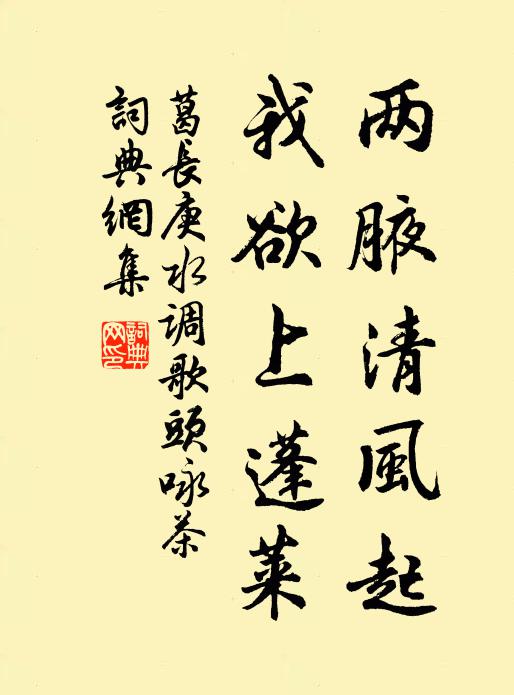 两腋清風起
我欲上蓬萊
葛長庚水调歌頭咏茶
詞典網集
詞典
网印